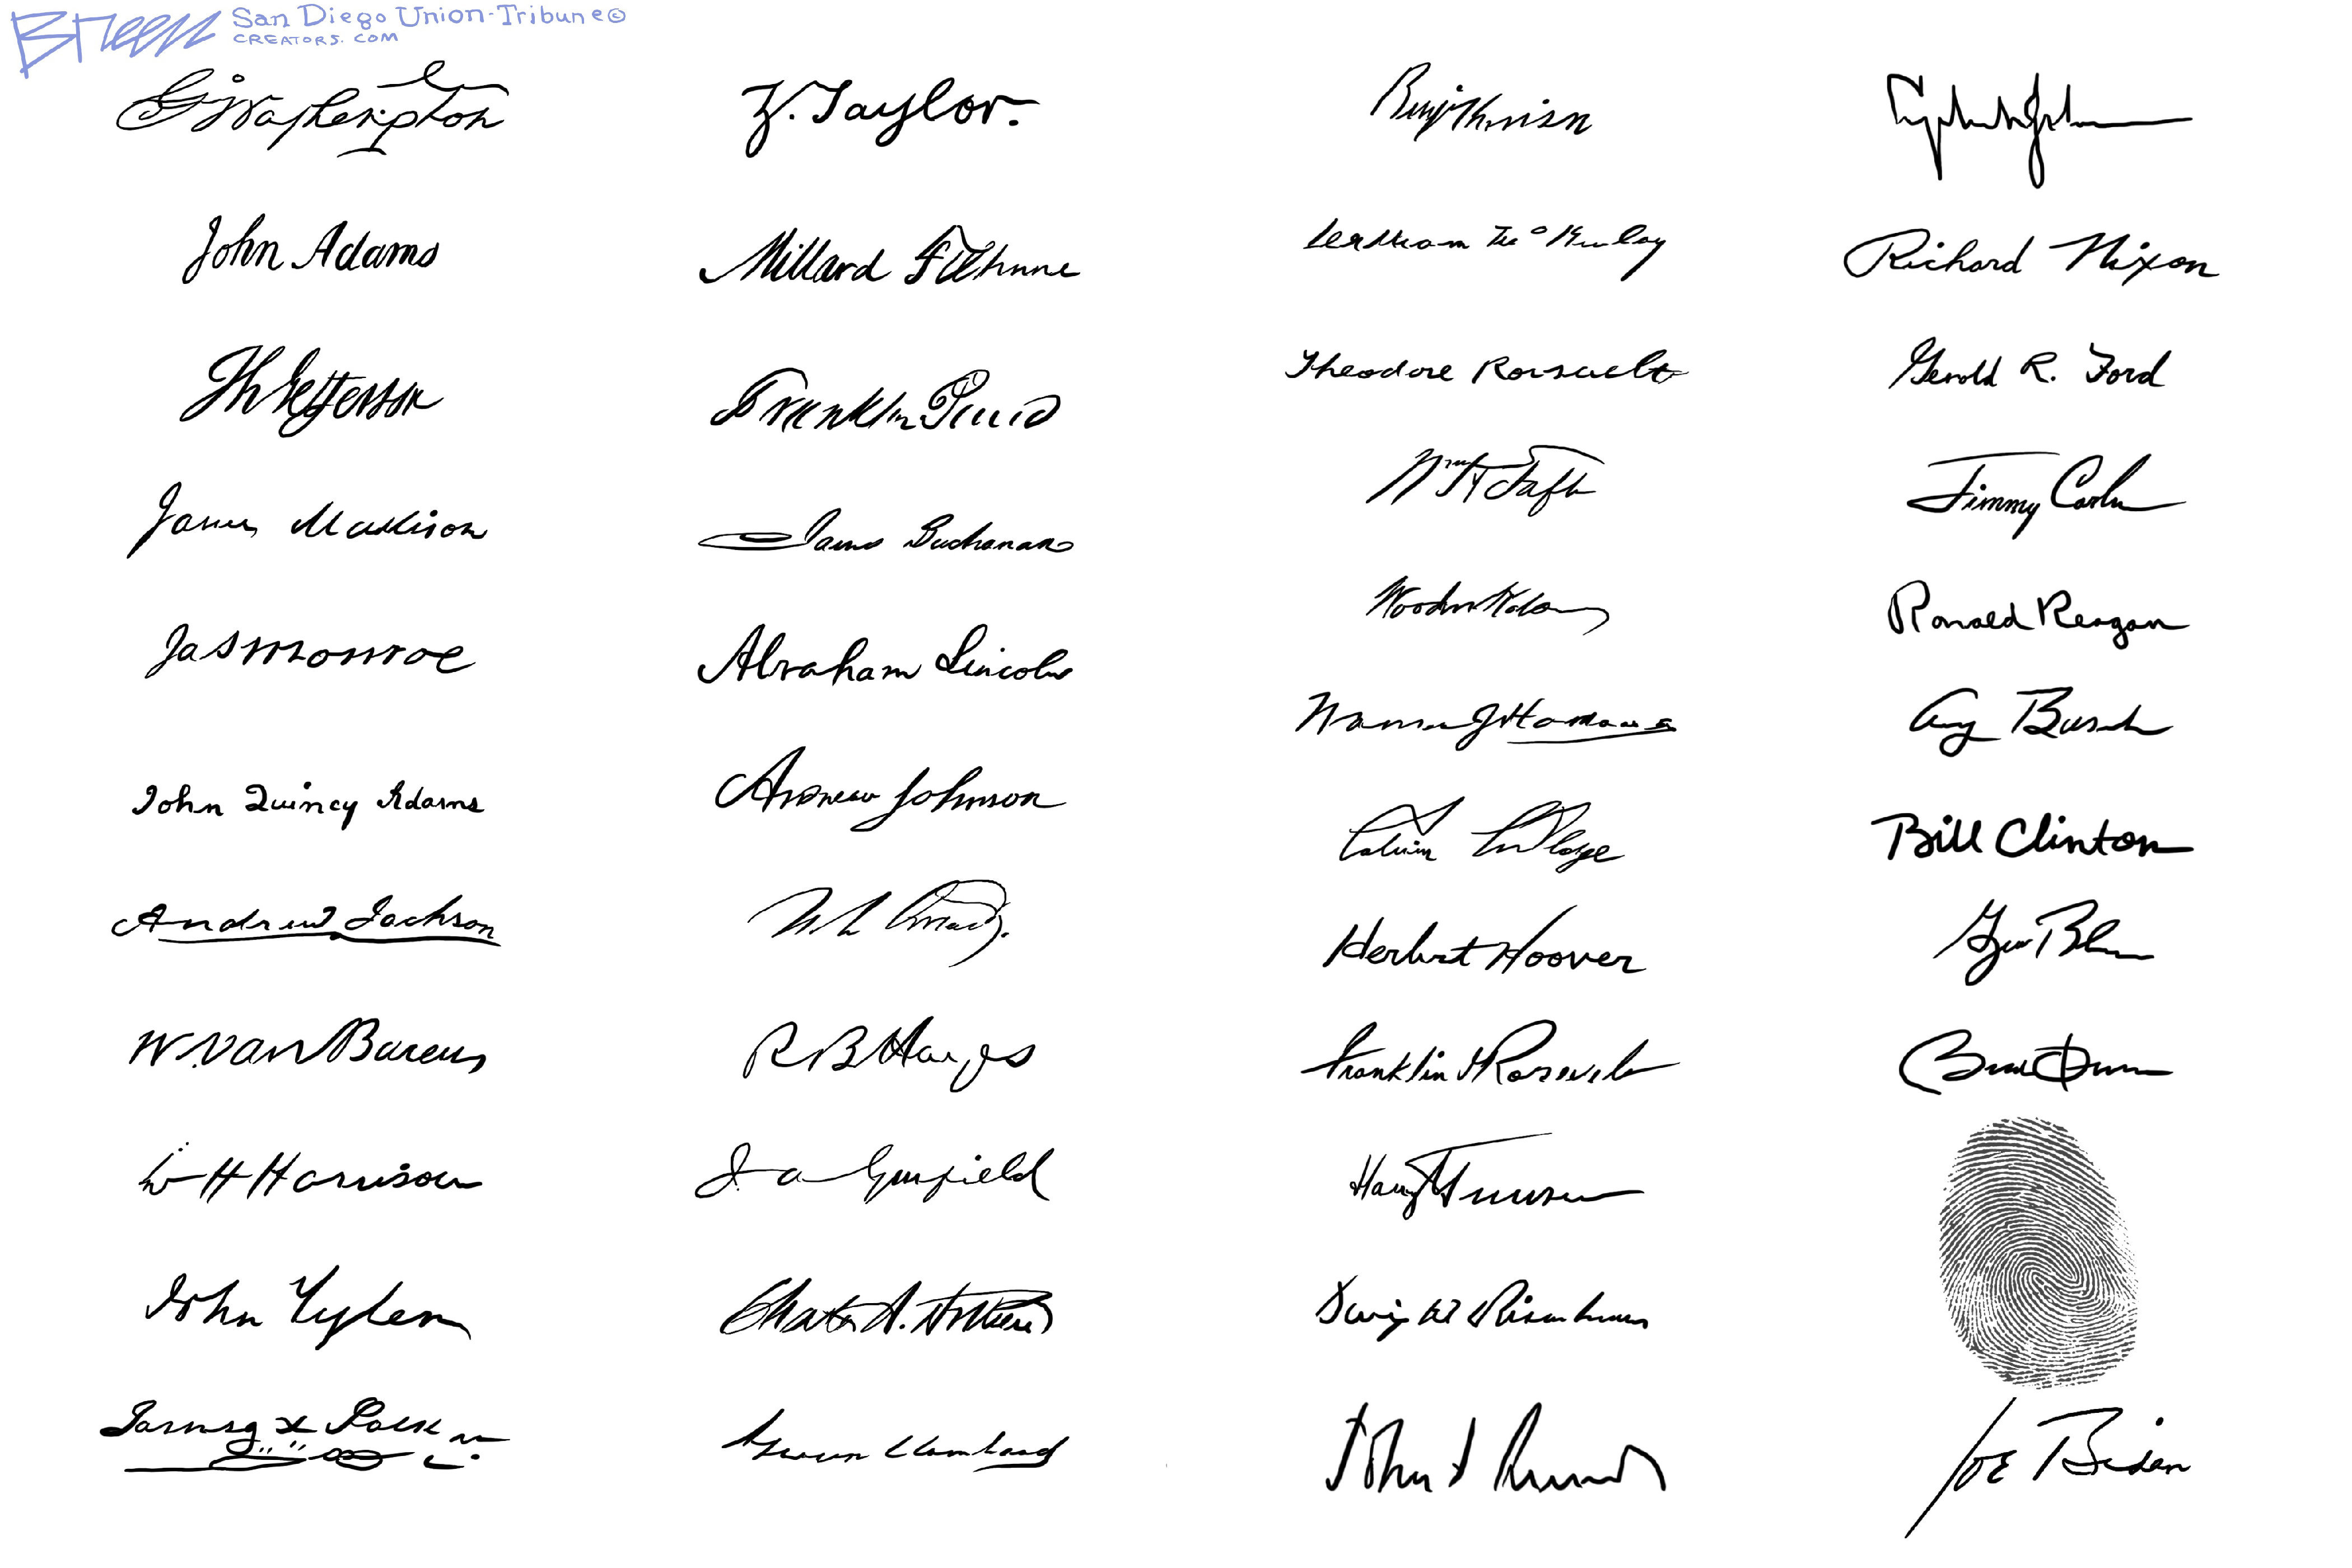 Breen San Diego Union-Tribune©
CREATORS.COM
G Washington
John Adams
Th Jefferson
James Madison
Jas Monroe
John Quincy Adams
Andrew Jackson
W. Van Buren
W H Harrison
John Tyler
James K Polk
Z. Taylor.
Millard Fillmore
Franklin Pierce
James Buchanan
Abraham Lincoln
Andrew Johnson
R B Hayes
J. A Garfield
Chester A. Arthur
Grover Cleveland
Benj Harrison
William McKinley
Theodore Roosevelt
Wm H Taft
Woodrow Wilson
Warren G Harding
Calvin Coolidge
Herbert Hoover
Franklin D Roosevelt
Harry Truman
Dwight D Eisenhower
John F Kennedy
Richard Nixon
Gerald R. Ford
Jimmy Carter
Ronald Reagan
Bush
Bill Clinton
Joe Biden